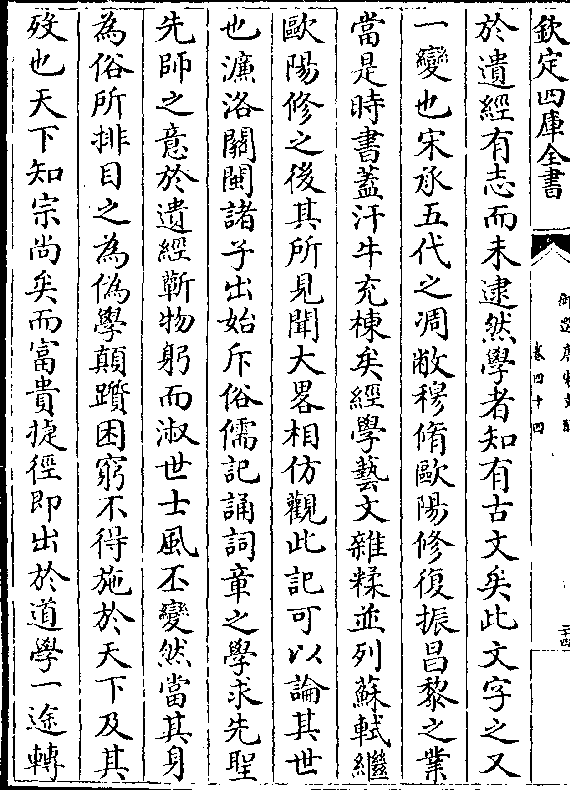 欽定四庫全書
御選唐宋文醇
卷四十四
於遺經有志而未逮然學者知有古文矣此文字之又
一變也宋承五代之凋敝穆脩歐陽修復振昌黎之業
當是時書蓋汗牛充棟矣經學藝文雜糅並列蘇軾繼
歐陽修之後其所見聞大畧相仿觀此記可以論其世
也濂洛關閩諸子出始斥俗儒記誦詞章之學求先聖
先師之意於遺經蘄物躬而淑世士風丕變然當其身
為俗所排目之為偽學顛躓困窮不得施於天下及其
歿也天下知宗尚矣而富貴捷徑即出於道學一途轉